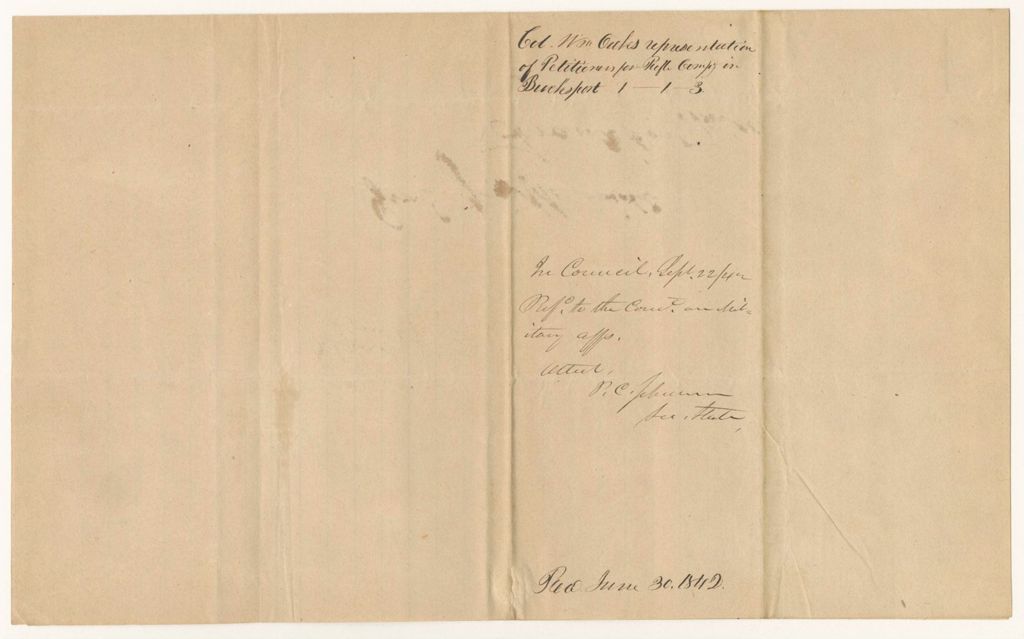 Col. Wm Oakes representation
of Petitioners for Rifle Compy in
Bucksport 1—1—3
In Council, Sept. 22/42
Refd. to the Comt. on Mil-
itary affs.
Attest,
P. C. Johnson
Sec. State,
Recd June 30. 1842.